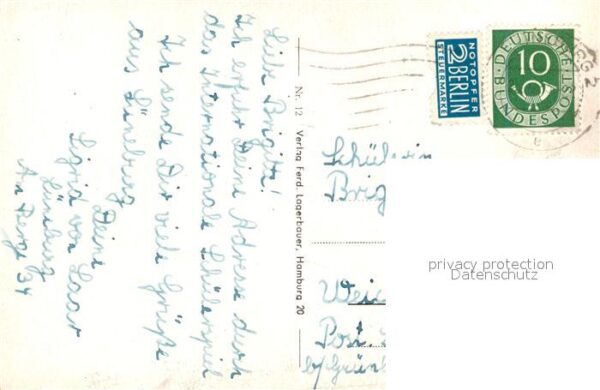 Liebe Brigitte!
Ich erfuhr Deine Adresse durch
das Internationale Schülerspiel
Ich sende Dir viele Grüße
aus Lüneburg
Deine
Sigrid von Laar
Lüneburg
Am Berge 34
Nr. 12 Verlag Ferd. Lagerbauer, Hamburg 20
NOTOPFER
2 BERLIN
STEUERMARKE
DEUTSCHE
10
BUNDESPOST
Schülerin
Brig
privacy protection
Datenschutz
Wei
Post
b/Grün